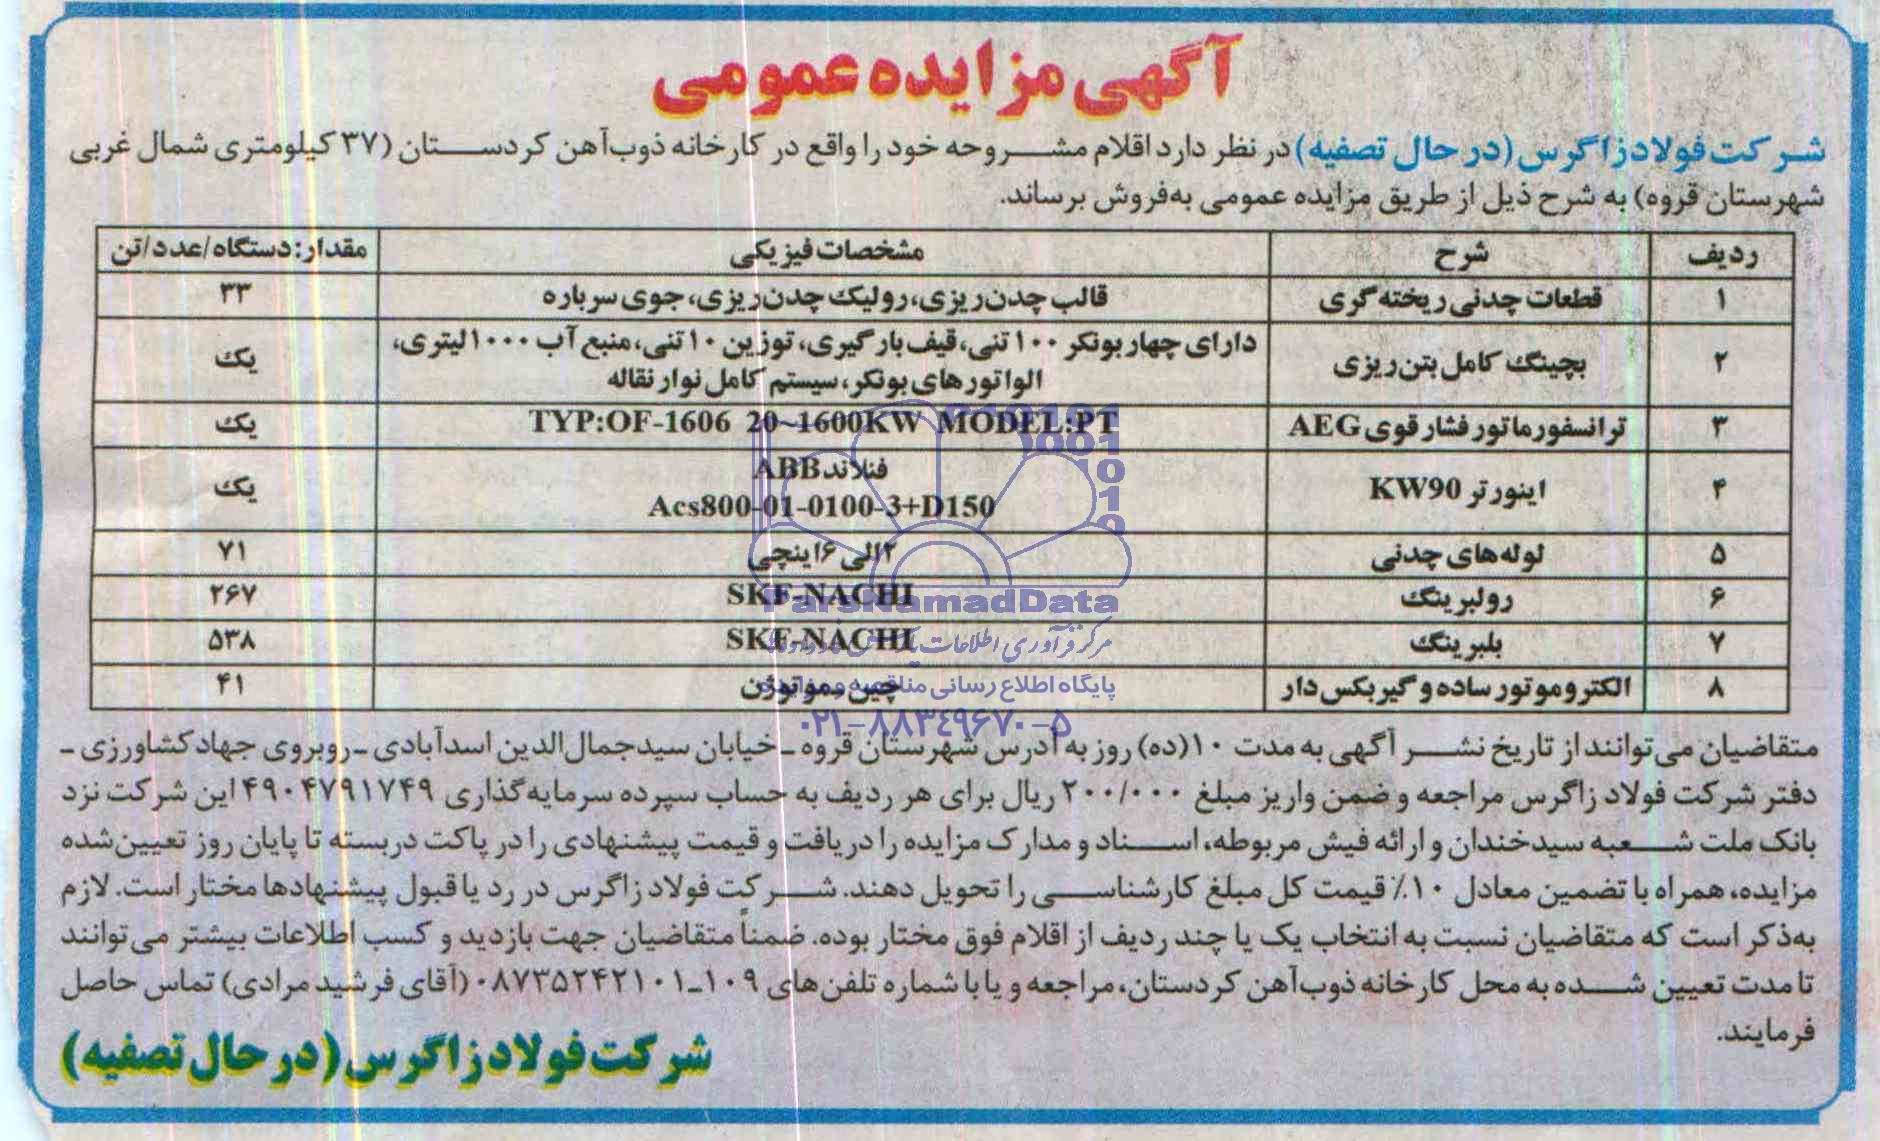 آگهی مزایده عمومی
شرکت فولاد زاگرس (در حال تصفیه) در نظر دارد اقلام مشروحه خود را واقع در کارخانه ذوب‌آهن کردستان (۳۷ کیلومتری شمال غربی
شهرستان قروه) به شرح ذیل از طریق مزایده عمومی به‌فروش برساند.
ردیف شرح مشخصات فیزیکی مقدار: دستگاه/عدد/تن
۱ قطعات چدنی ریخته‌گری قالب چدن‌ریزی، رولیک چدن‌ریزی، جوی سرباره ۳۳
۲ بچینگ کامل بتن‌ریزی دارای چهار بونکر ۱۰۰ تنی، قیف بارگیری، توزین ۱۰ تنی، منبع آب ۱۰۰۰ لیتری، یک
الواتورهای بونکر، سیستم کامل نوار نقاله
۳ ترانسفورماتور فشار قوی AEG TYP:OF-1606 20~1600KW MODEL:PT یک
۴ اینورتر KW90 فنلاند ABB یک
Acs800-01-0100-3+D150
۵ لوله‌های چدنی ۲ الی ۶ اینچی ۷۱
۶ رولبرینگ SKF-NACHI ۲۶۷
۷ بلبرینگ SKF-NACHI ۵۳۸
۸ الکتروموتور ساده و گیربکس‌دار چین و موتوژن ۴۱
ParsNamadData
پایگاه اطلاع رسانی مناقصه و مزایده
۰۲۱-۸۸۳۴۹۶۷۰-۵
متقاضیان می‌توانند از تاریخ نشر آگهی به مدت ۱۰ (ده) روز به آدرس شهرستان قروه ـ خیابان سیدجمال‌الدین اسدآبادی ـ روبروی جهاد کشاورزی ـ
دفتر شرکت فولاد زاگرس مراجعه و ضمن واریز مبلغ ۲۰۰/۰۰۰ ریال برای هر ردیف به حساب سپرده سرمایه‌گذاری ۴۹۰۴۷۹۱۷۴۹ این شرکت نزد
بانک ملت شعبه سیدخندان و ارائه فیش مربوطه، اسناد و مدارک مزایده را دریافت و قیمت پیشنهادی را در پاکت دربسته تا پایان روز تعیین‌شده
مزایده، همراه با تضمین معادل ۱۰٪ قیمت کل مبلغ کارشناسی را تحویل دهند. شرکت فولاد زاگرس در رد یا قبول پیشنهادها مختار است. لازم
به‌ذکر است که متقاضیان نسبت به انتخاب یک یا چند ردیف از اقلام فوق مختار بوده. ضمناً متقاضیان جهت بازدید و کسب اطلاعات بیشتر می‌توانند
تا مدت تعیین شده به محل کارخانه ذوب‌آهن کردستان، مراجعه و یا با شماره تلفن‌های ۱۰۹ـ۰۸۷۳۵۲۴۲۱۰۱ (آقای فرشید مرادی) تماس حاصل
فرمایند.
شرکت فولاد زاگرس (در حال تصفیه)